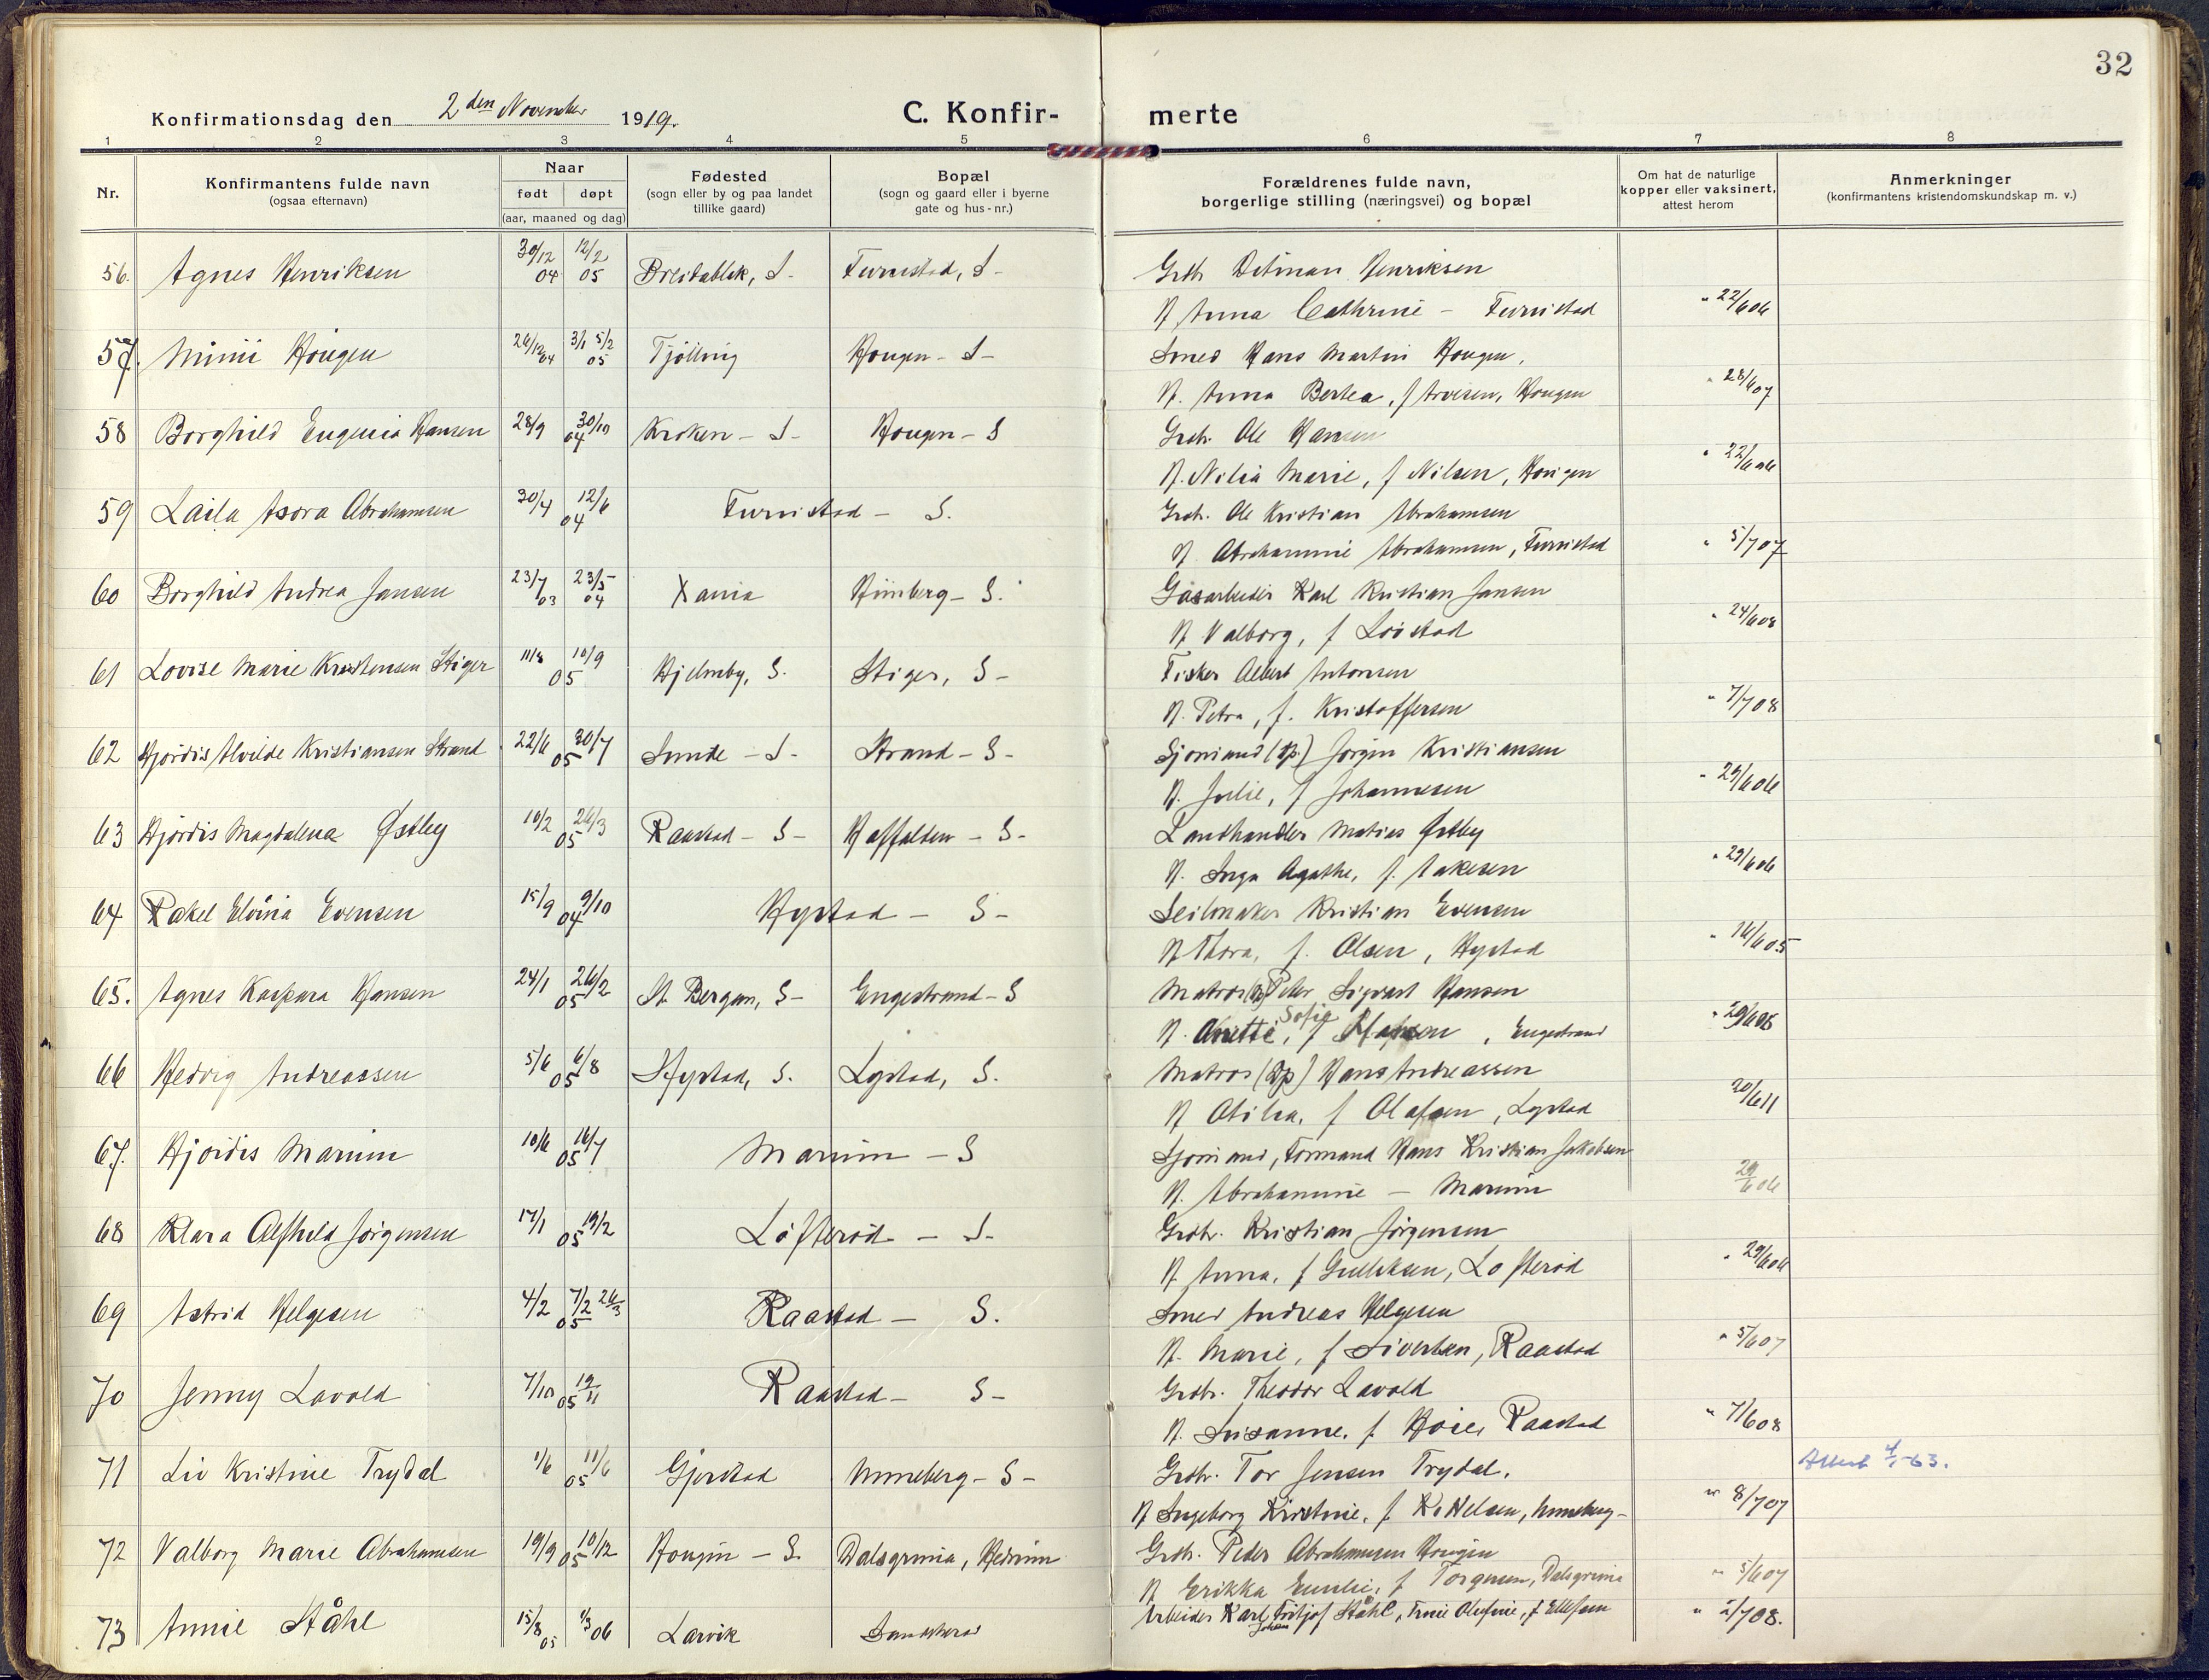 32
Konfirmationsdag den 2den November 1919. C. Konfir- merte
1 2 3 4 5 6 7 8
Nr. Konfirmantens fulde navn (ogsaa efternavn) Naar født døpt (aar, maaned og dag) Fødested (sogn eller by og paa landet tillike gaard) Bopæl (sogn og gaard eller i byerne gate og hus-nr.) Forældrenes fulde navn, borgerlige stilling (næringsvei) og bopæl Om hat de naturlige kopper eller vaksinert, attest herom Anmerkninger (konfirmantens kristendomskundskap m. v.)
56. Agnes Henriksen 30/12 04 12/2 05 Breidablik, S- Furustad, S- Grdb. Ditman Henriksen
H Anna Cathrine - Furustad " 22/6 06
57. Mimi Hougen 26/12 04 3/1 5/2 05 Tjölling Hougen - S- Smed Hans Martin Hougen,
H. Anna Bertea, f Arvesen, Hougen " 28/6 07
58 Borghild Eugenia Hansen 28/9 30/10 04 Kroken - S- Hougen - S Grdb. Ole Hansen
H. Nilia Marie, f Nilsen, Hougen " 22/6 06
59 Laila Asora Abrahamsen 30/4 12/6 04 Furustad - S. Grdb. Ole Kristian Abrahamsen
H. Abrahamine Abrahamsen, Furustad " 5/7 07
60 Borghild Andrea Jansen 23/7 03 23/5 04 Xania Himberg - S. Gasarbeider Karl Kristian Jansen
H Valborg, f Löistad " 24/6 08
61 Lovise Marie Kristensen Stiger 11/8 10/9 05 Hjelmby, S. Stiger, S- Fisker Albert Antonsen
H. Petra, f. Kristoffersen " 7/7 08
62 Hjördis Alvilde Kristiansen Strand 22/6 30/7 05 Sunde - S- Strand - S- Sjömand (Dp.) Jörgen Kristiansen
H. Julie, f Johannesen " 29/6 06
63 Hjördis Magdalena Østby 10/2 26/3 05 Raastad - S- Haffalten - S- Landhandler Matias Østby
H. Inga Agathe, f. Aakesen " 29/6 06
64 Rakel Elvina Evensen 15/9 9/10 04 Hystad - S- Seilmaker Kristian Evensen
H Thora, f. Olsen, Hystad " 16/6 05
65. Agnes Kaspara Hansen 24/1 26/2 05 St. Bergan, S- Engestrand - S Matros Peter Sigvart Hansen
H. Anette Sofie, f , Engestrand " 29/6 05
66 Hedvig Andreassen 5/6 6/8 05 Hystad, S. Lystad, S. Matros (Dp) Hans Andreassen
H Otilia, f Olafsen, Lystad 20/6 11
67. Hjördis Marum 10/6 16/7 05 Marum - S Sjömand, Formand Hans Kristian Jakobsen
H. Abrahamine - Marum 29/6 06
68 Klara Alfhild Jörgensen 17/1 19/2 05 Löfteröd - S- Grdbr. Kristian Jörgensen
H Anna, f Gulliksen, Lofteröd " 29/6 06
69 Astrid Helgesen 4/2 7/2 26/3 05 Raastad - S. Smed Andreas Helgesen
H. Marie, f Sivertsen, Raastad " 5/6 07
70 Jenny Lavold 7/10 19/11 05 Raastad - S- Grdbr. Theodor Lavold
H. Susanne, f. Höies Raastad " 7/6 08
71 Liv Kristine Trydal 1/6 11/6 05 Gjerstad Unneberg - S- Grdbr. Tor Jensen Trydal. Attest 4/1-63.
H Ingeborg Kirstine, f. Kittelsen, Unneberg - " 8/7 07
72 Valborg Marie Abrahamsen 19/9 10/12 05 Hougen - S. Dalsgrinna, Hedrum Grdb. Peder Abrahamsen Hougen
H Erikka Emilie, f Torgersen, Dalsgrinna " 5/6 07
73 Annie Ståhl 15/8 05 4/3 06 Larvik Sandsteröd Arbeider Karl Johan Fritjof Ståhl, Tmie Olufine, f Ellefsen " 2/7 08.